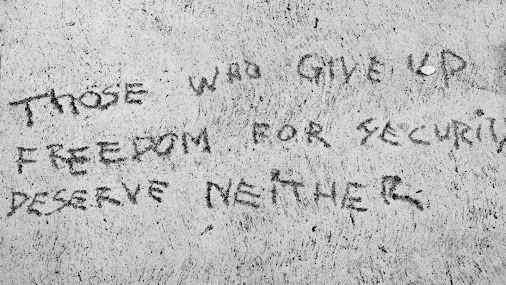 THOSE WHO GIVE UP
FREEDOM FOR SECURITY
DESERVE NEITHER